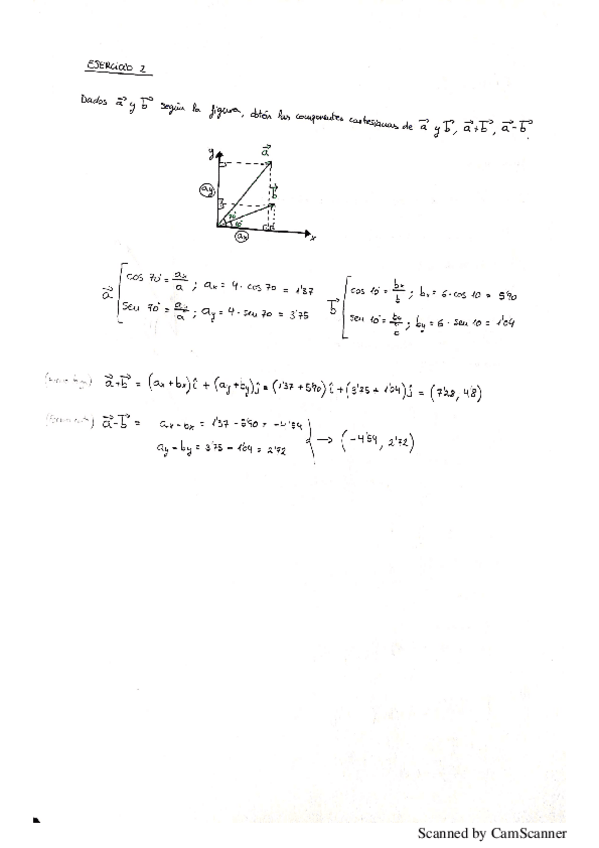 EJERCICIO 2
Dados a⃗ y b⃗ según la figura, obtén las componentes cartesianas de a⃗ y b⃗, a⃗+b⃗, a⃗-b⃗.
y
a⃗
b⃗
ay
70°
10°
ax
x
a⃗
cos 70° = ax/a ; ax = 4 · cos 70 = 1'37
sen 70° = ax/a ; ay = 4 · sen 70 = 3'75
b⃗
cos 10 = bx/b ; bx = 6 · cos 10 = 5'90
sen 10 = ; by = 6 · sen 10 = 1'04
a⃗+b⃗ = (ax+bx)î + (ay+by)ĵ = (1'37 + 5'90) î + (3'75 + 1'04)ĵ = (7'28, 4'8)
a⃗-b⃗ = ax - bx = 1'37 - 5'90 = -4'54
ay - by = 3'75 - 1'04 = 2'72
→ (-4'54, 2'72)
Scanned by CamScanner